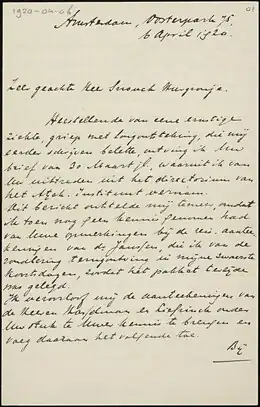 1920-04-06
01
Amsterdam, Oosterpark 75.
6 April 1920.
Zeer geachte Heer Snouck Hurgronje.
Herstellende van eene ernstige
ziekte, griep met longontsteking, die mij
eerder schrijven belette, ontving ik Uw
brief van 30. Maart jl., waaruit ik van
Uw uittreden uit het directorium van
het Atjeh. Instituut vernam.
Dit bericht ontstelde mij temeer, omdat
ik toen nog geen kennis genomen had
van Uwe opmerkingen bij de reis. aantee
keningen van dr Jansen, die ik van de
zendtering terugontving in mijne zwaarste
koortsdagen, zoodat het pakket terzijde
was gelegd.
Ik veroorloof mij de aanteekeningen van
de Heeren Kooijman en Kiefrinck onder
Uwe kennis te brengen en
voeg daaraan het volgende toe.
Bij